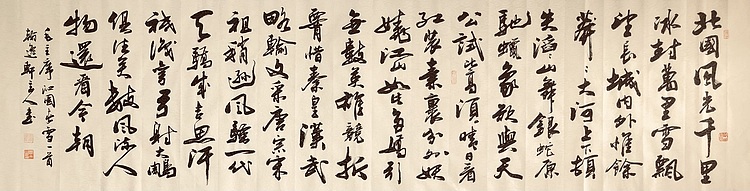 北國風光千里
冰封萬里雪飄
望長城內外惟餘
莽々大河上下頓
失滔々山舞銀蛇原
馳蠟象欲與天
公試比高須晴日看
紅裝素裹分外妖
嬈江山如此多嬌引
無數英雄競折
腰惜秦皇漢武
略輸文采唐宗宋
祖稍遜風騷一代
天驕成吉思汗
祗識彎弓射大鵰
俱往矣數風流人
物還看今朝
毛主席沁園春雪一首
主人書